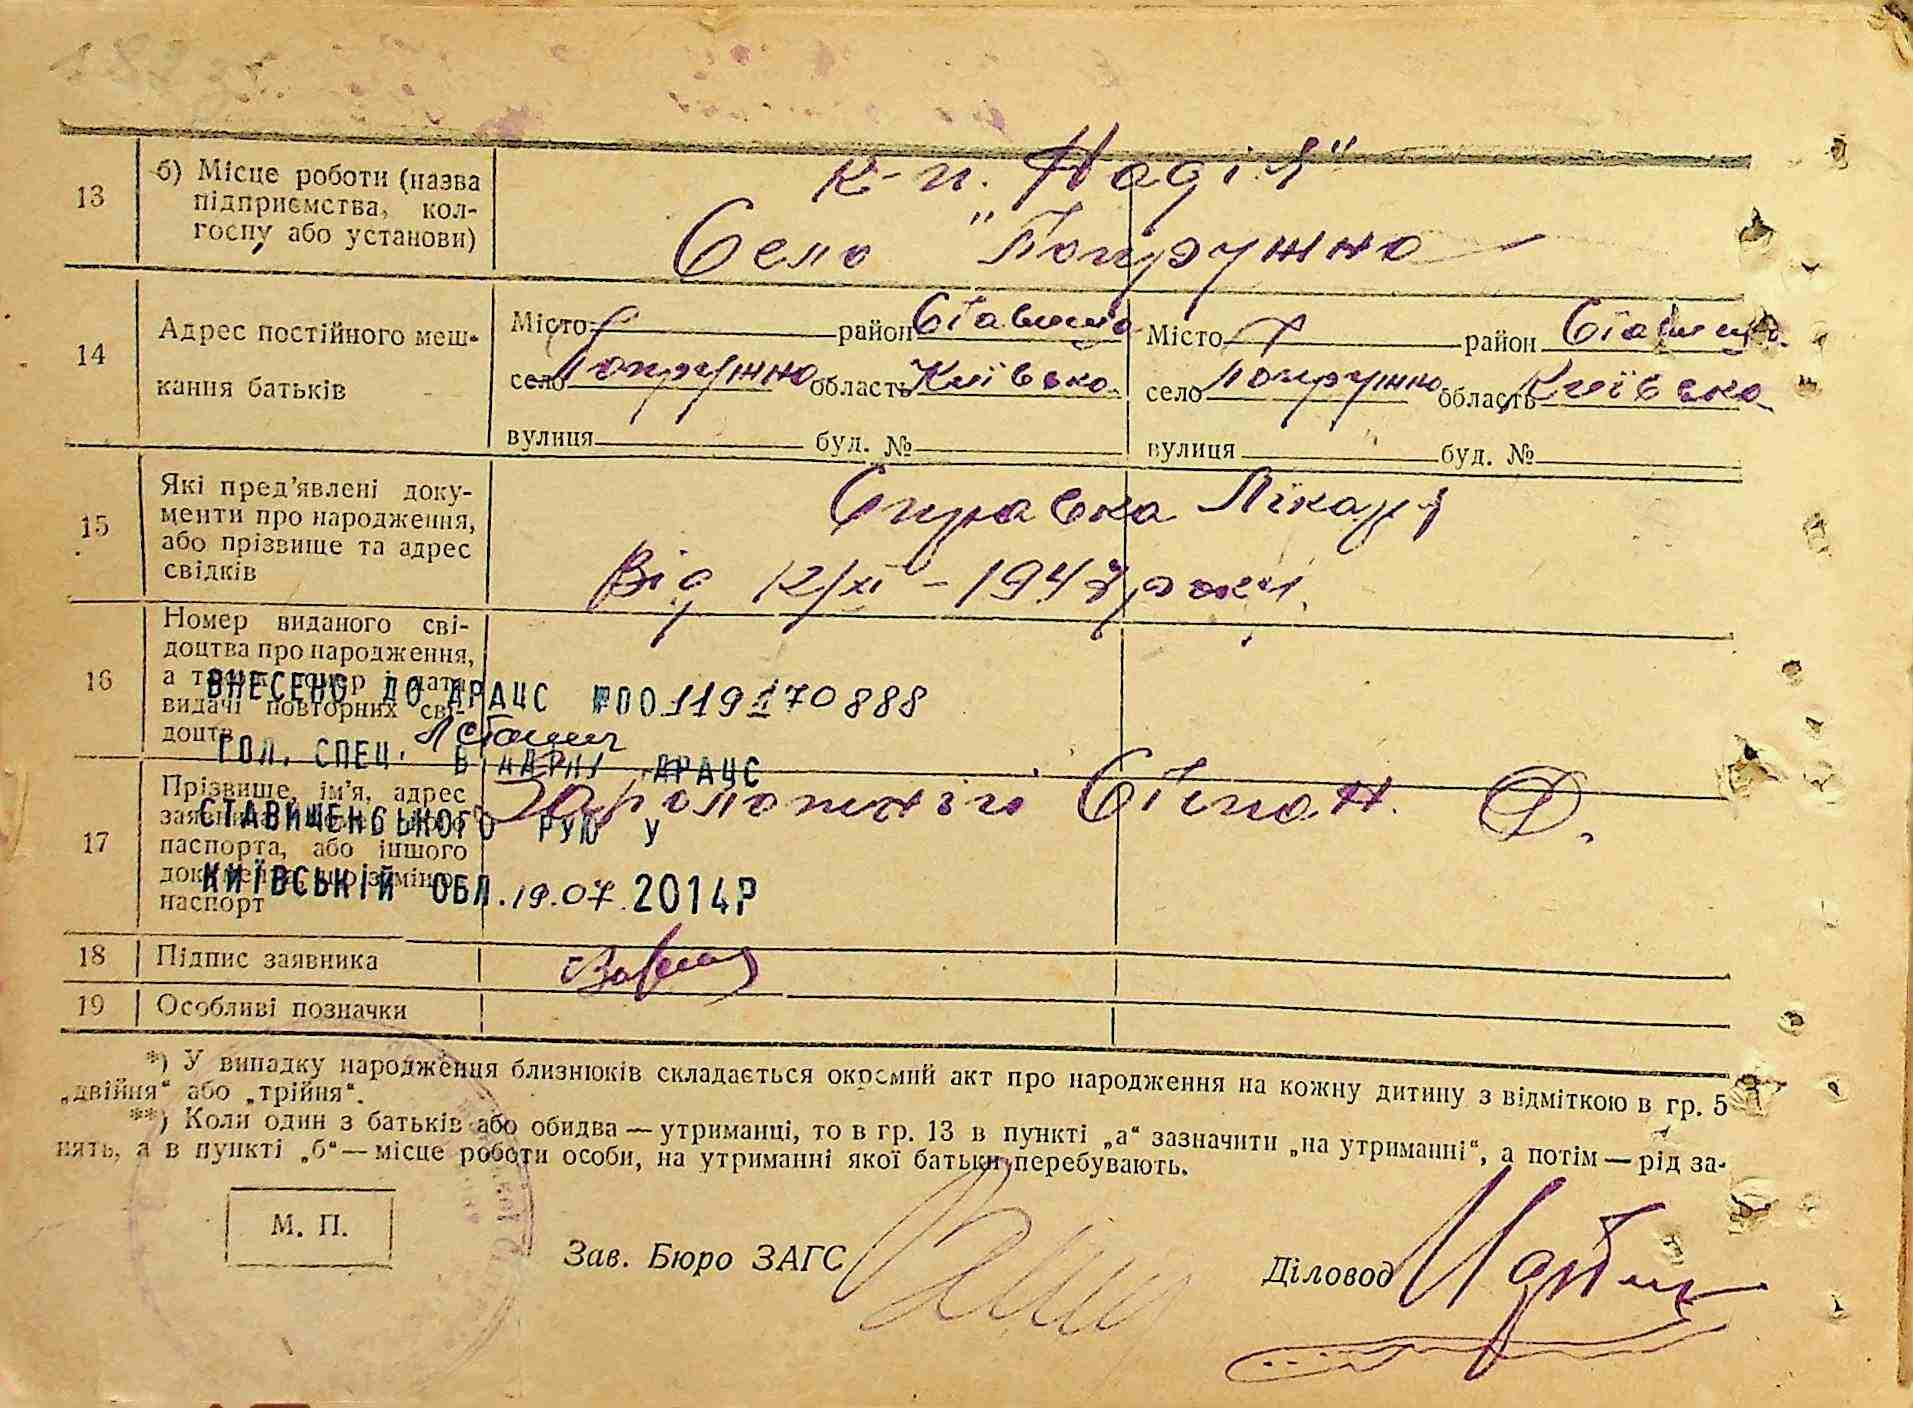 13
б) Місце роботи (назва
підприємства, кол-
госпу або установи)
к-п. Надія"
Село "Попружно
14
Адрес постійного меш-
кання батьків
Місто район Ставище
село Попружно область Київська
вулиця буд. №
Місто район Ставище
село Попружно область Київська
вулиця буд. №
15
Які пред'явлені доку-
менти про народження,
або прізвище та адрес
свідків
Справка Лікаря
Від 12/XI - 1947 року.
16
Номер виданого сві-
доцтва про народження,
а також номер і дата
видачі повторних сві-
доцтв
ВНЕСЕНО ДО ДРАЦС №00119170888
ГОЛ. СПЕЦ. ВІДДІЛУ ДРАЦС
СТАВИЩЕНСЬКОГО РУЮ У
КИЇВСЬКІЙ ОБЛ. 19.07.2014Р
17
Прізвище, ім'я, адрес
паспорта, або іншого
документа, що заміняє
паспорт
Степан Ф.
18
Підпис заявника
19
Особливі позначки
*) У випадку народження близнюків складається окремий акт про народження на кожну дитину з відміткою в гр. 5
„двійня“ або „трійня“.
**) Коли один з батьків або обидва — утриманці, то в гр. 13 в пункті „а“ зазначити „на утриманні“, а потім — рід за-
нять, а в пункті „б“ — місце роботи особи, на утриманні якої батьки перебувають.
М. П.
Зав. Бюро ЗАГС
Діловод